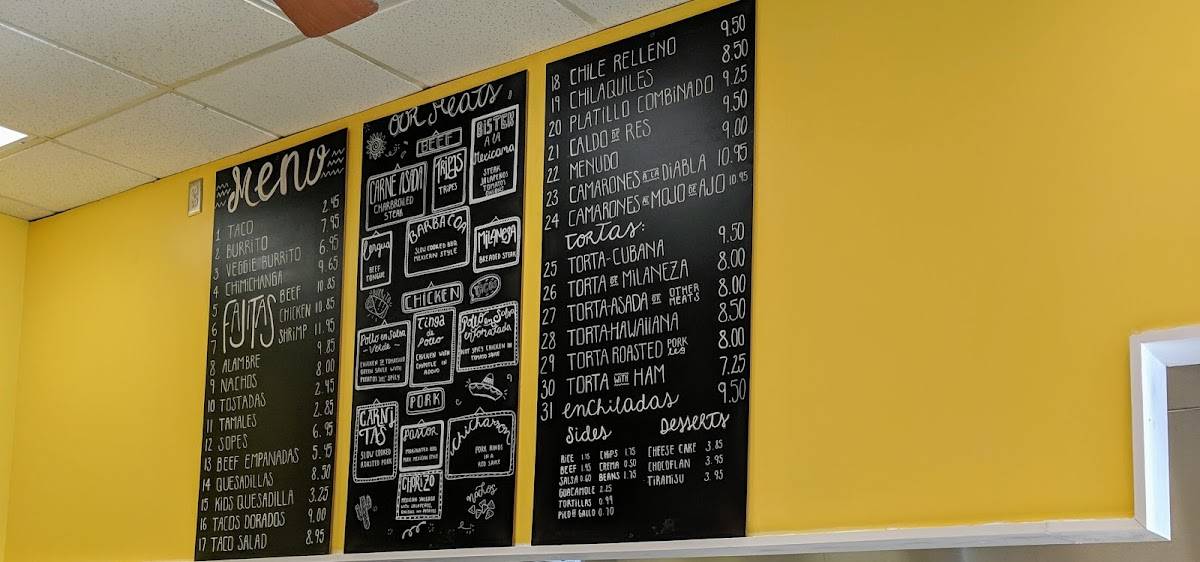 Menu
1 TACO 2.45
2 BURRITO 7.95
3 VEGGIE BURRITO 6.95
4 CHIMICHANGA 9.65
5 FAJITAS BEEF 10.85
6 CHICKEN 10.85
7 SHRIMP 11.95
8 ALAMBRE 9.85
9 NACHOS 8.00
10 TOSTADAS 2.45
11 TAMALES 2.85
12 SOPES 6.95
13 BEEF EMPANADAS 5.45
14 QUESADILLAS 8.50
15 KIDS QUESADILLA 3.25
16 TACOS DORADOS 9.00
17 TACO SALAD 8.95
OUR Meats
BEEF
CARNE ASADA
CHARBROILED
STEAK
TRIPAS
TRIPES
BISTEK
A LA
Mexicana
STEAK
JALAPEÑOS
TOMATO
Lengua
BEEF
TONGUE
BARBACOA
SLOW COOKED BBQ
MEXICAN STYLE
MILANESA
BREADED STEAK
TACOS
CHICKEN
Pollo en Salsa
Verde
CHICKEN IN TOMATILLO
GREEN SAUCE WITH
POTATOS
SPICY
Tinga
de
Pollo
CHICKEN WITH
CHIPOTLE IN
ADOVO
Pollo en Salsa
enForazada
NOT SPICY CHICKEN IN
TOMATO SAUCE
PORK
CARNITAS
SLOW COOKED
ROASTED PORK
Pastor
MARINATED BBQ
PORK MEXICAN STYLE
ChicharRon
PORK RINDS
IN A
RED SAUCE
CHORIZO
MEXICAN SAUSAGE
WITH JALAPEÑOS,
ONIONS AND POTATOS
nachos
18 CHILE RELLENO 9.50
19 CHILAQUILES 8.50
20 PLATILLO COMBINADO 9.25
21 CALDO DE RES 9.50
22 MENUDO 9.00
23 CAMARONES A LA DIABLA 10.95
24 CAMARONES AL MOJO DE AJO 10.95
TORTAS:
25 TORTA-CUBANA 9.50
26 TORTA DE MILANEZA 8.00
27 TORTA-ASADA OR OTHER MEATS 8.00
28 TORTA-HAWAIIANA 8.50
29 TORTA ROASTED PORK LEG 8.00
30 TORTA WITH HAM 7.25
31 enchiladas 9.50
Sides
RICE 1.75 CHIPS 1.75
BEEF 1.95 CREMA 0.50
SALSA 0.60 BEANS 1.75
GUACAMOLE 2.25
TORTILLAS 0.99
PICO DE GALLO 0.70
DESSERTS
CHEESE CAKE 3.85
CHOCOFLAN 3.95
TIRAMISU 3.95